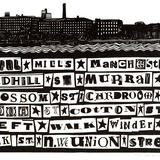 MILLS MANCHEST
DHILL ST MURRAY
OSSOM ST CARDROOM
ST COTTON ST
EFT WALK WINDER
K ST N.W. UNION STRE